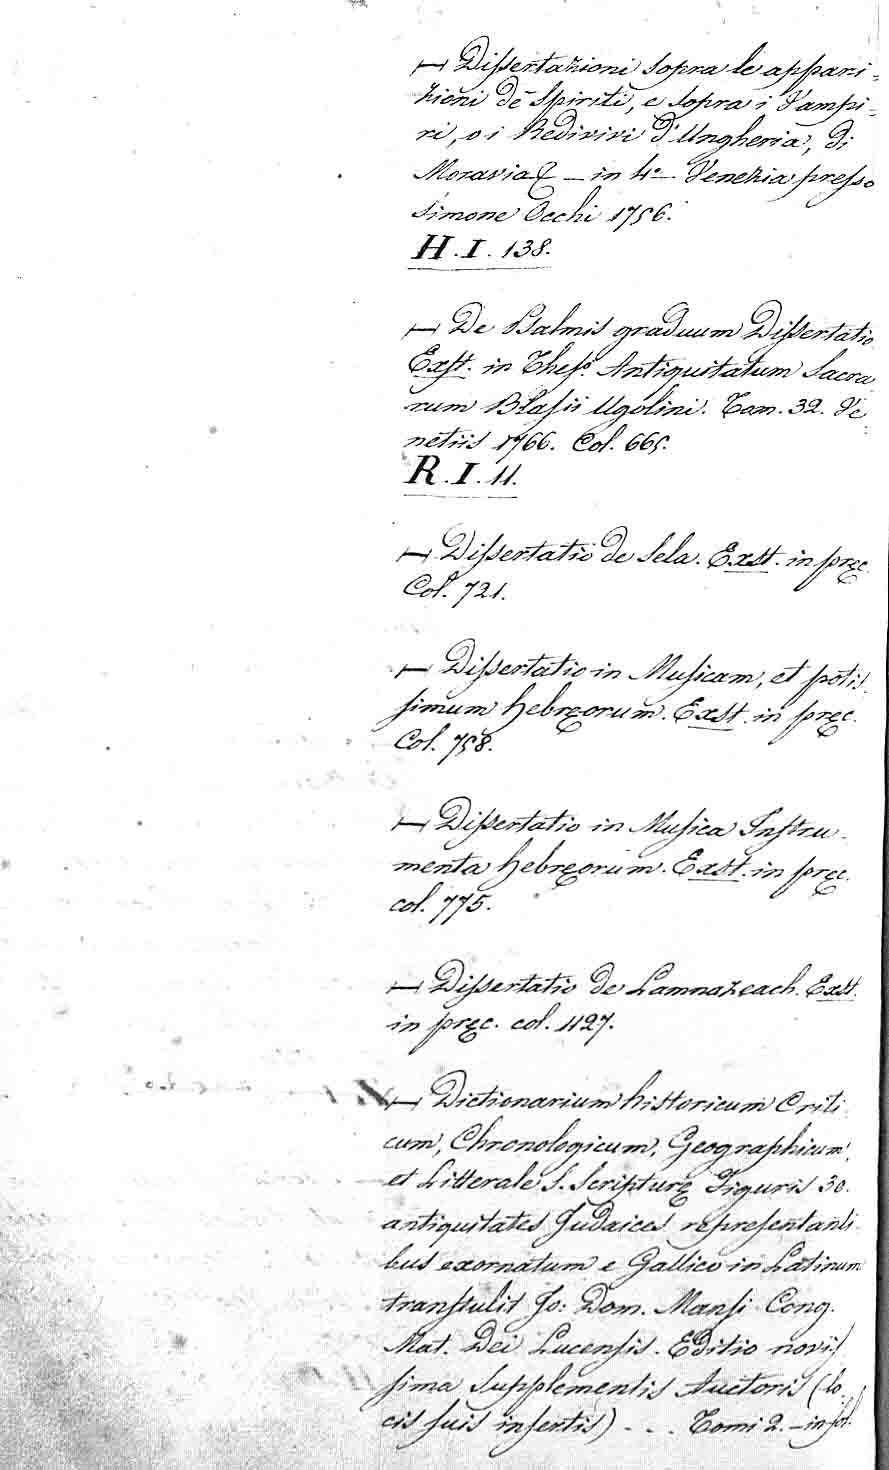 — Dissertazioni sopra le appari=
zioni de' Spiriti, e sopra i Vampi=
ri, o i Redivivi d'Ungheria, di
Moravia & — in 4.º Venezia presso
Simone Occhi 1756.
H. I. 138.
— De Psalmis graduum Dissertatio
Exst. in Thes.º Antiquitatum Sacra
rum Blasii Ugolini. Tom. 32. Ve=
netiis 1766. Col. 665.
R. I. 11.
— Dissertatio de Sela. Exst. in pręc.
Col. 721.
— Dissertatio in Musicam, et potis
simum hebręorum. Exst. in pręc.
Col. 758.
— Dissertatio in Musica Instru
menta hebręorum. Exst. in pręc.
col. 775.
— Dissertatio de Lamnazeach. Exst.
in pręc. col. 1127.
— Dictionarium historicum Criti
cum, Chronologicum, Geographicum,
et Litterale S. Scripturę Figuris 30.
antiquitates Judaicas representanti
bus exornatum e Gallico in Latinum
transtulit Jo: Dom. Mansi Cong.
Mat. Dei Lucensis. Editio novis
sima Supplementis Auctoris (lo
cis suis insertis) . . . Tomi 2. — in fol.